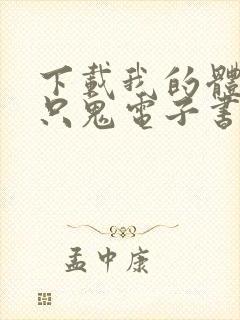 下載我的體
只鬼電子書
孟中康